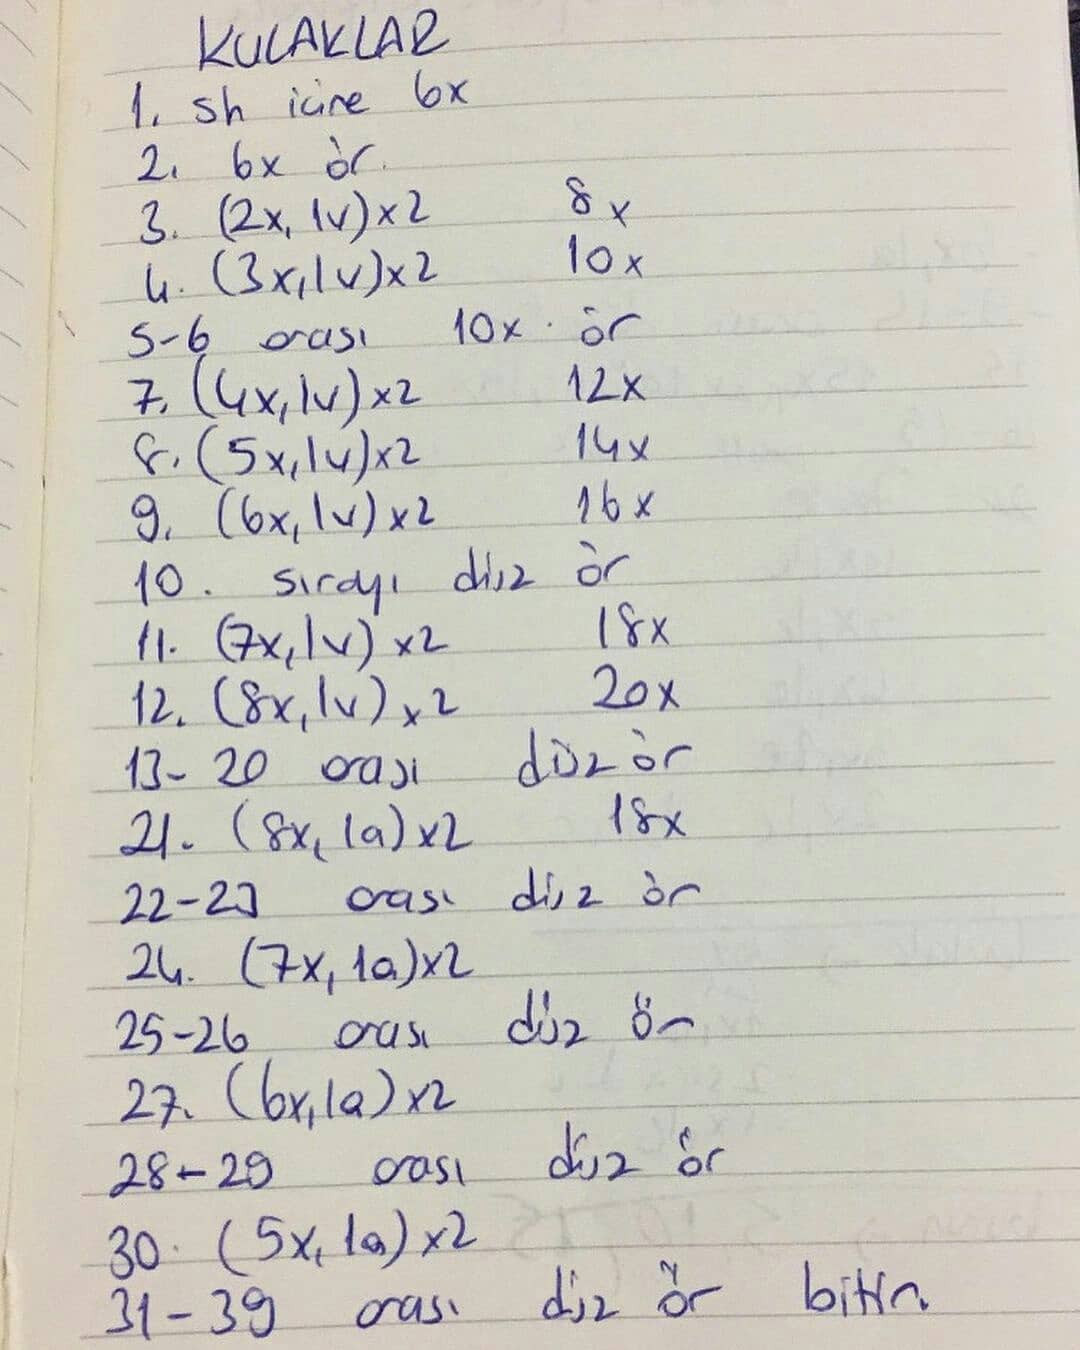 KULAKLAR
1. sh icine 6x
2. 6x ör.
3. (2x, 1v)x2 8x
4. (3x,1v)x2 10x
5-6 orası 10x. ör
7. (4x,1v)x2 12x
8. (5x,1v)x2 14x
9. (6x,1v)x2 16x
10. sırayı düz ör
11. (7x,1v)x2 18x
12. (8x,1v)x2 20x
13-20 orası düz ör
21. (8x,1a)x2 18x
22-23 orası düz ör
24. (7x,1a)x2
25-26 orası düz ör
27. (6x,1a)x2
28-29 orası düz ör
30. (5x,1a)x2
31-39 orası düz ör bitir.